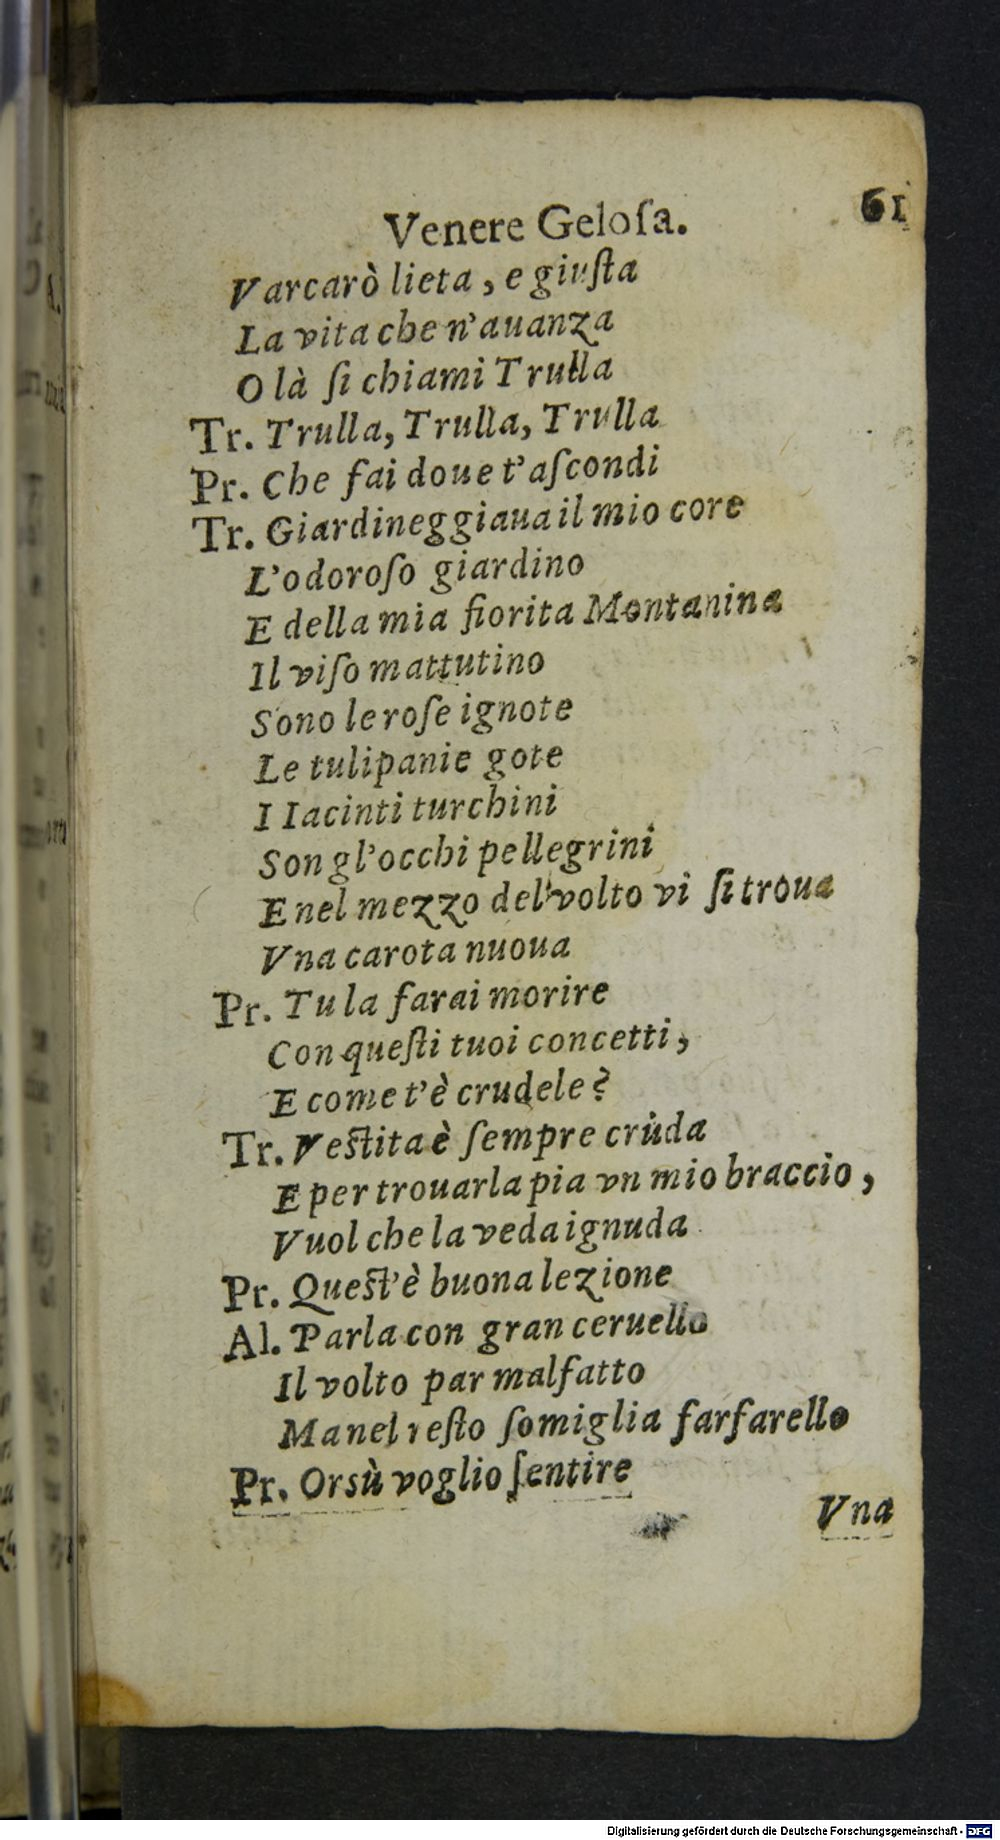 61
Venere Geloſa.
Varcarò lieta, e giuſta
La vita che n'auanza
O là ſi chiami Trulla
Tr. Trulla, Trulla, Trulla
Pr. Che fai doue t'aſcondi
Tr. Giardineggiaua il mio core
L'odoroſo giardino
E della mia fiorita Montanina
Il viſo mattutino
Sono le roſe ignote
Le tulipanie gote
I Iacinti turchini
Son gl'occhi pellegrini
E nel mezzo del volto vi ſi troua
Vna carota nuoua
Pr. Tu la farai morire
Con queſti tuoi concetti,
E come t'è crudele?
Tr. Veſtita è ſempre crùda
E per trouarla pia vn mio braccio,
Vuol che la veda ignuda
Pr. Queſt'è buona lezione
Al. Parla con gran ceruello
Il volto par malfatto
Ma nel reſto ſomiglia farfarello
Pr. Orsù voglio ſentire
Vna
Digitalisierung gefördert durch die Deutsche Forschungsgemeinschaft - DFG